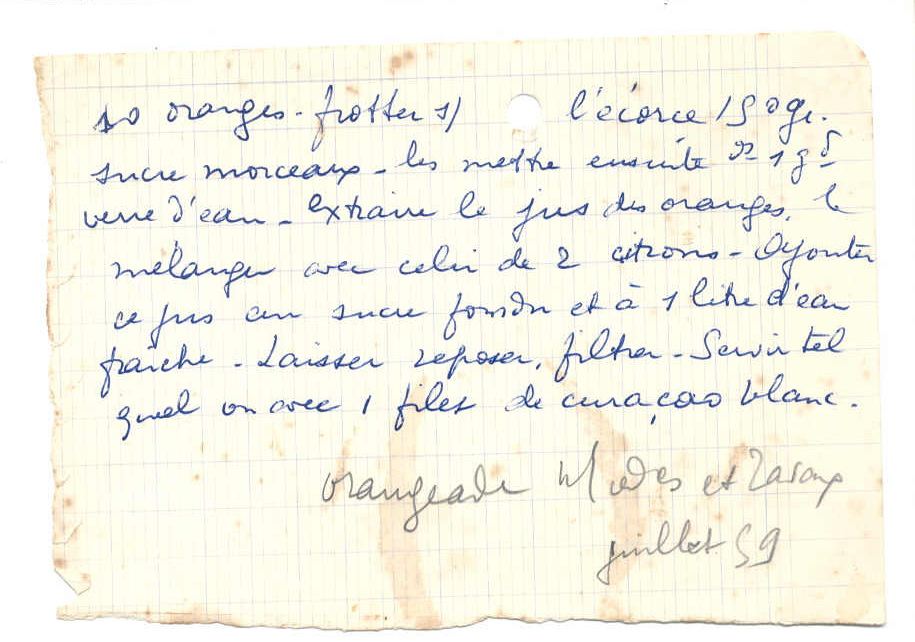 10 oranges - frotter s/ l'écorce 150 gr.
sucre morceaux - les mettre ensuite ds 1 gd
verre d'eau - Extraire le jus des oranges, le
mélanger avec celui de 2 citrons - Ajouter
ce jus au sucre fondu et à 1 litre d'eau
fraîche - Laisser reposer, filtrer - Servir tel
quel ou avec 1 filet de curaçao blanc.
orangeade Modes et Travaux
juillet 59